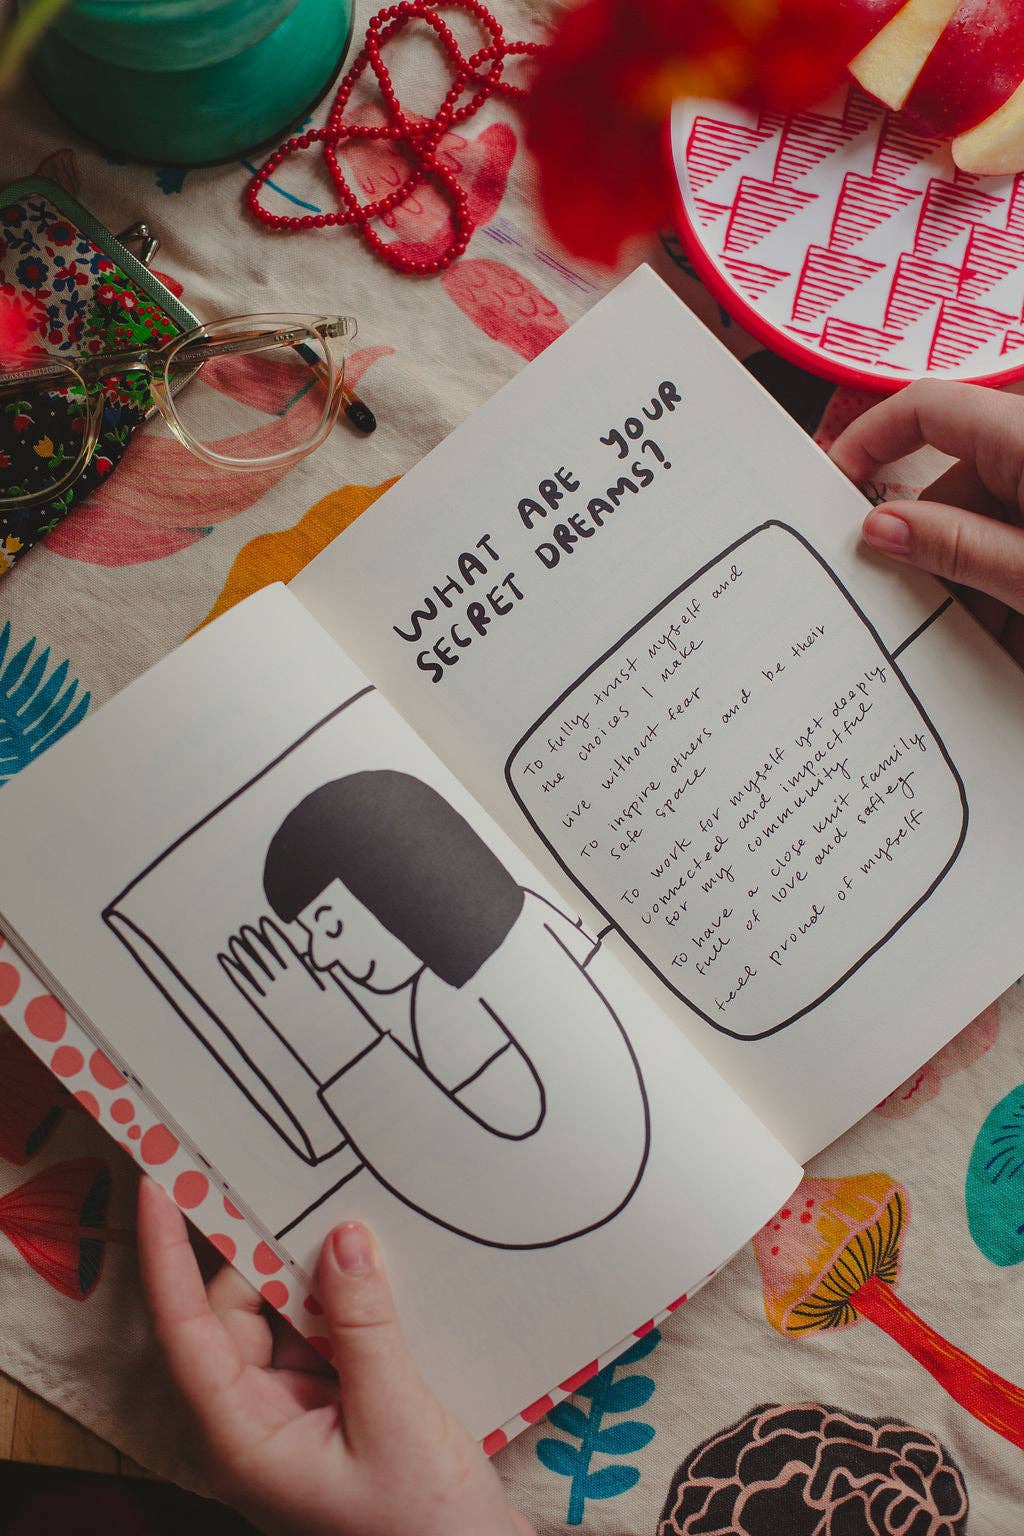 WHAT ARE YOUR
SECRET DREAMS?
To fully trust myself and
the choices I make
live without fear
To inspire others and be their
safe space
To work for myself yet deeply
connected and impactful
for my community
To have a close knit family
full of love and saftey
feel proud of myself